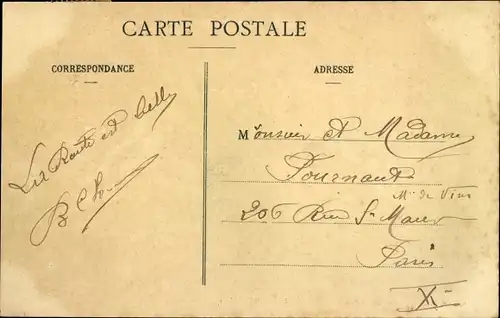 CARTE POSTALE
CORRESPONDANCE
La Route est belle
ADRESSE
Monsieur et Madame
Fournaut
Md de Vins
206 Rue St Maur
Paris
X